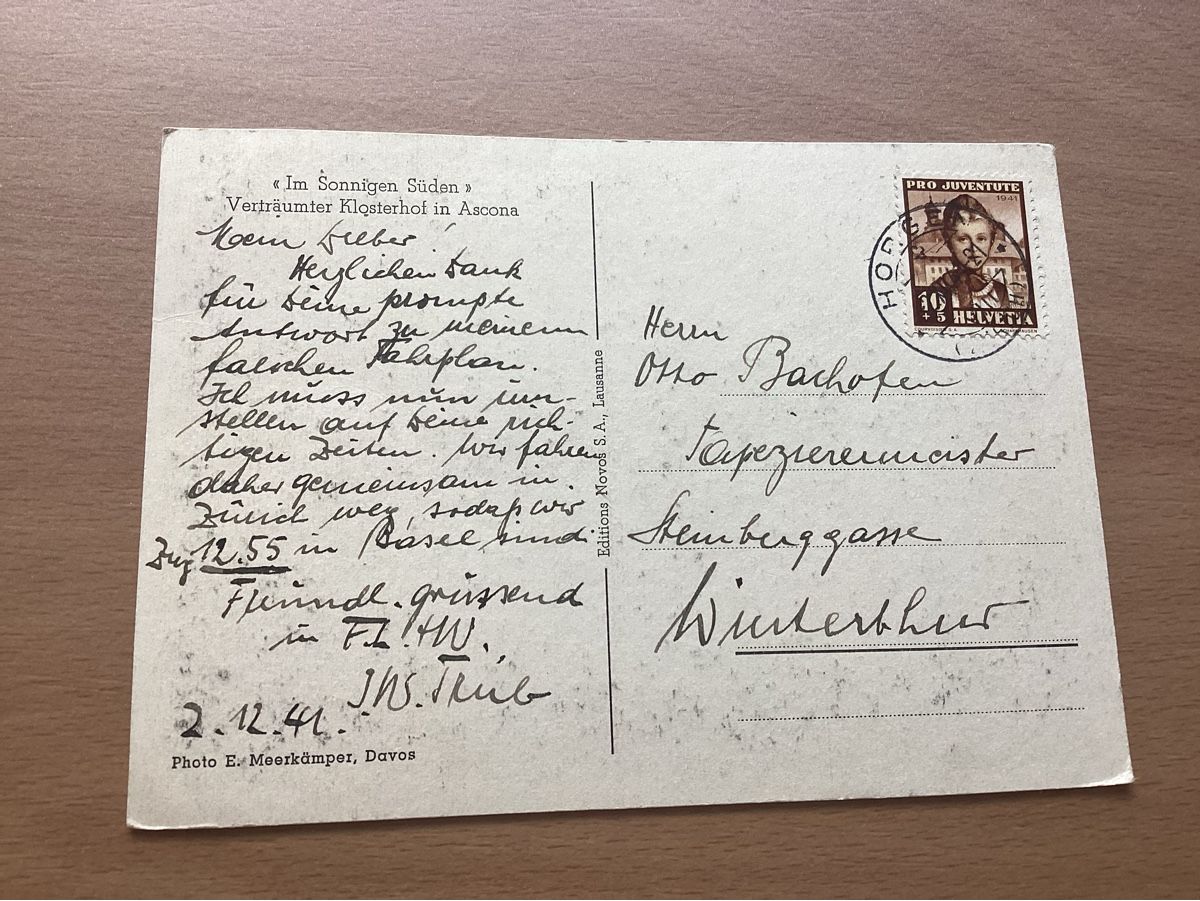 « Im Sonnigen Süden »
Verträumter Klosterhof in Ascona
Mein Lieber!
Herzlichen Dank
für Deine prompte
Antwort zu meinem
falschen Fahrplan.
Ich muss nun um-
stellen auf Deine rich-
tigen Zeiten. Wir fahren
daher gemeinsam in
Zürich weg, sodass wir
Zug 12.55 in Basel sind.
Freundl. grüssend
in F.L.+W.
Trüb
2.12.41.
Photo E. Meerkämper, Davos
Editions Novos S.A., Lausanne
PRO JUVENTUTE
1941
10
+5
HELVETIA
COURVOISIER S.A.
HORGEN
Herrn
Otto Bachofen
Tapezierermeister
Steinberggasse
Winterthur